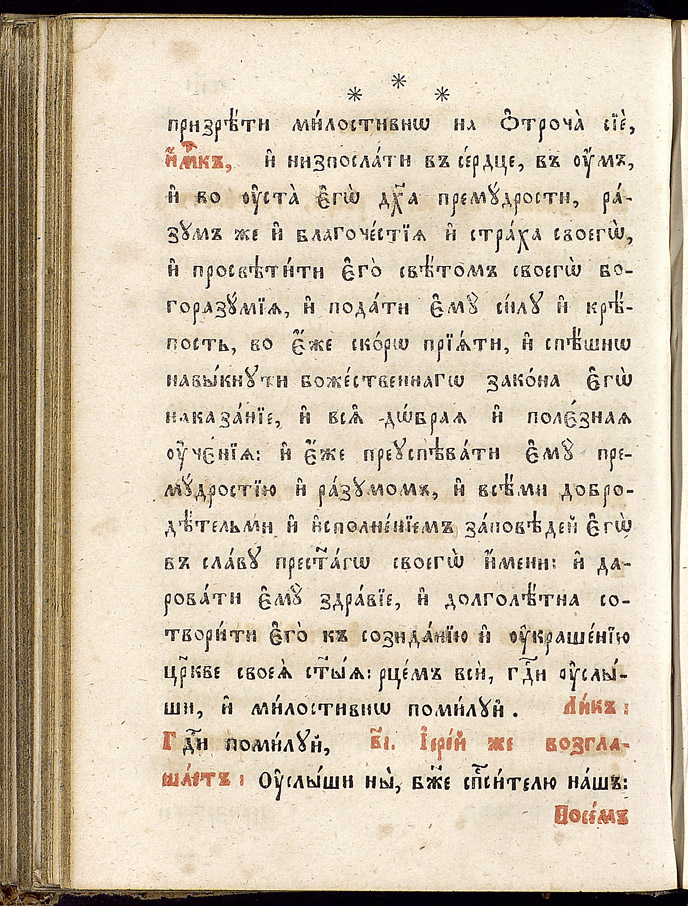 * * *
призрѣ́ти ми́лостивнѡ на Ѻ҆троча̀ сїѐ,
и҆м҃къ, и҆ низпосла́ти въ се́рдце, въ ѹ҆́мъ,
и҆ во ѹ҆ста̀ є҆гѡ̀ дх҃а премꙋ́дрости, ра́-
зꙋмъ же и҆ благоче́стїѧ и҆ стра́ха своегѡ̀,
и҆ просвѣти́ти є҆го̀ свѣ́томъ своегѡ̀ бо-
горазꙋ́мїѧ, и҆ пода́ти є҆мꙋ̀ си́лꙋ и҆ крѣ́-
пость, во є҆́же ско́рѡ прїѧ́ти, и҆ спѣ́шнѡ
навы́кнꙋти боже́ственнагѡ зако́на є҆гѡ̀
наказа́нїе, и҆ всѧ̑ дѡ́браѧ и҆ поле́знаѧ
ѹ҆че́нїѧ: и҆ є҆́же преꙋспѣва́ти є҆мꙋ̀ пре-
мꙋ́дростїю и҆ ра́зꙋмомъ, и҆ всѣ́ми добро-
дѣ́тельми и҆ и҆сполне́нїемъ за́повѣдей є҆гѡ̀
въ сла́вꙋ прест҃а́гѡ своегѡ̀ и҆́мени: и҆ да-
рова́ти є҆мꙋ̀ здра́вїе, и҆ долголѣ́тна со-
твори́ти є҆го̀ къ созида́нїю и҆ ѹ҆краше́нїю
цр҃кве своеѧ̀ ст҃ы́ѧ: рце́мъ всѝ, гд҃и ѹ҆слы́-
ши, и҆ ми́лостивнѡ поми́лꙋй. Ли́къ:
Гд҃и поми́лꙋй, в҃і. І҆ере́й же возгла-
ша́етъ: Оу҆слы́ши ны̀, бж҃е сп҃си́телю на́шъ:
Посе́мъ